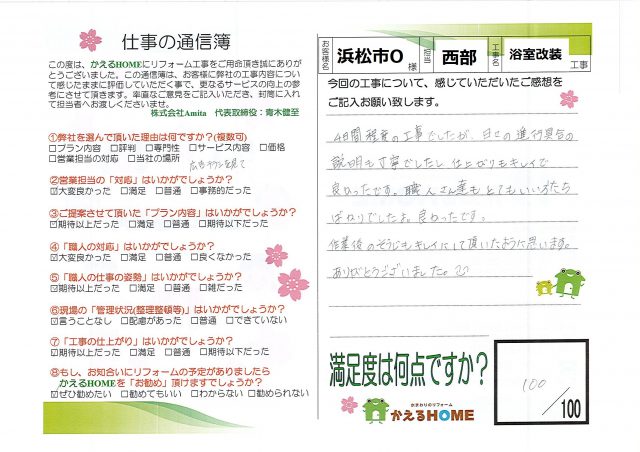 仕事の通信簿
この度は、かえるHOMEにリフォーム工事をご用命頂き誠にありが
とうございました。この通信簿は、お客様に弊社の工事内容につい
て感じたままに評価していただく事で、更なるサービスの向上の参
考にさせて頂きます。率直なご意見をご記入いただき、封筒に入れ
て担当者へお渡しくださいませ。
株式会社Amita 代表取締役：青木健至
①弊社を選んで頂いた理由は何ですか?(複数可)
□プラン内容 □評判 □専門性 □サービス内容 □価格
□営業担当の対応 □当社の場所 広告チラシを見て
②営業担当の「対応」はいかがでしょうか?
☑大変良かった □満足 □普通 □事務的だった
③ご提案させて頂いた「プラン内容」はいかがでしょうか?
☑期待以上だった □満足 □普通 □期待以下だった
④「職人の対応」はいかがでしょうか?
☑大変良かった □満足 □普通 □良くなかった
⑤「職人の仕事の姿勢」はいかがでしょうか?
☑期待以上だった □満足 □普通 □雑だった
⑥現場の「管理状況(整理整頓等)」はいかがでしょうか?
☑言うことなし □配慮があった □普通 □できていない
⑦「工事の仕上がり」はいかがでしょうか?
☑期待以上だった □満足 □普通 □期待以下だった
⑧もし、お知合いにリフォームの予定がありましたら
かえるHOMEを「お勧め」頂けますでしょうか?
☑ぜひ勧めたい □勧めてもいい □わからない □勧められない
お客様名 浜松市O 様 担当 西部 工事名 浴室改装 工事
今回の工事について、感じていただいたご感想を
ご記入お願い致します。
4日間程度の工事でしたが、日々の進行具合の
説明も丁寧でしたし仕上がりもキレイで
良かったです。職人さん達もとてもいい方たち
ばかりでしたよ。良かったです。
作業後のそうじもキレイにして頂いたように思います。
ありがとうございました。
満足度は何点ですか?
100
/100
かえるHOME